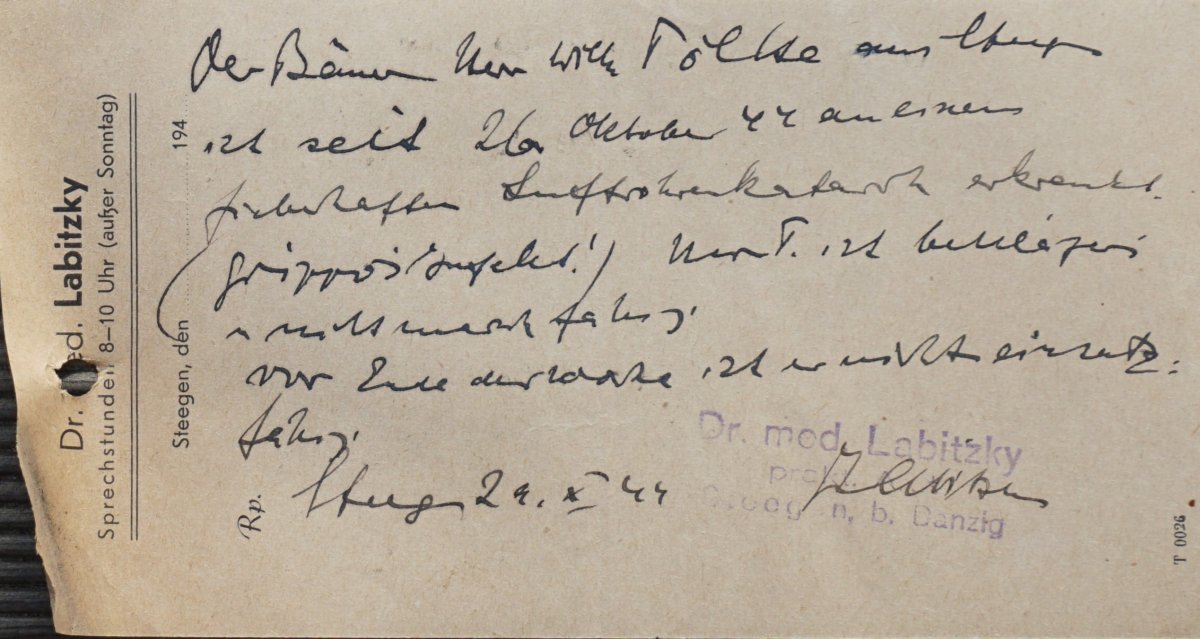 Dr. med. Labitzky
Sprechstunden 8–10 Uhr (außer Sonntag)
Steegen, den 194
Rp.
Der Herr Willi aus Steegen
ist seit 26. Oktober 44 an einem
fieberhaften Luftröhrenkatarrh erkrankt.
(grippöser Infekt!) Herr T. ist bettlägerig
u nicht marschfähig.
vor Ende der Woche ist er nicht einsatz-
fähig.
Steegen 29. X 44
Dr. med. Labitzky
prakt.
Steegen, b. Danzig
T 0026